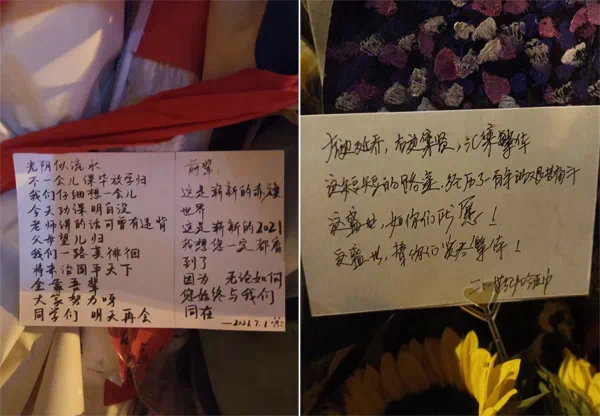 光阴似流水
不一会儿课毕放学归
我们仔细想一会儿
今天功课明白没
老师讲的话可曾有违背
父母望儿归
我们一路莫徘徊
将来治国平天下
全靠吾辈
大家努力呀
同学们 明天再会
前辈:
这是崭新的赤旗
世界
这是崭新的2021
我想您一定都看
到了
因为 无论如何
您始终与我们
同在
—2021.7.1
延乔,右边集贤,汇集繁华
这短短的路途,经历了百年的艰苦奋斗
这盛世,如你们所愿!
这盛世,替你们